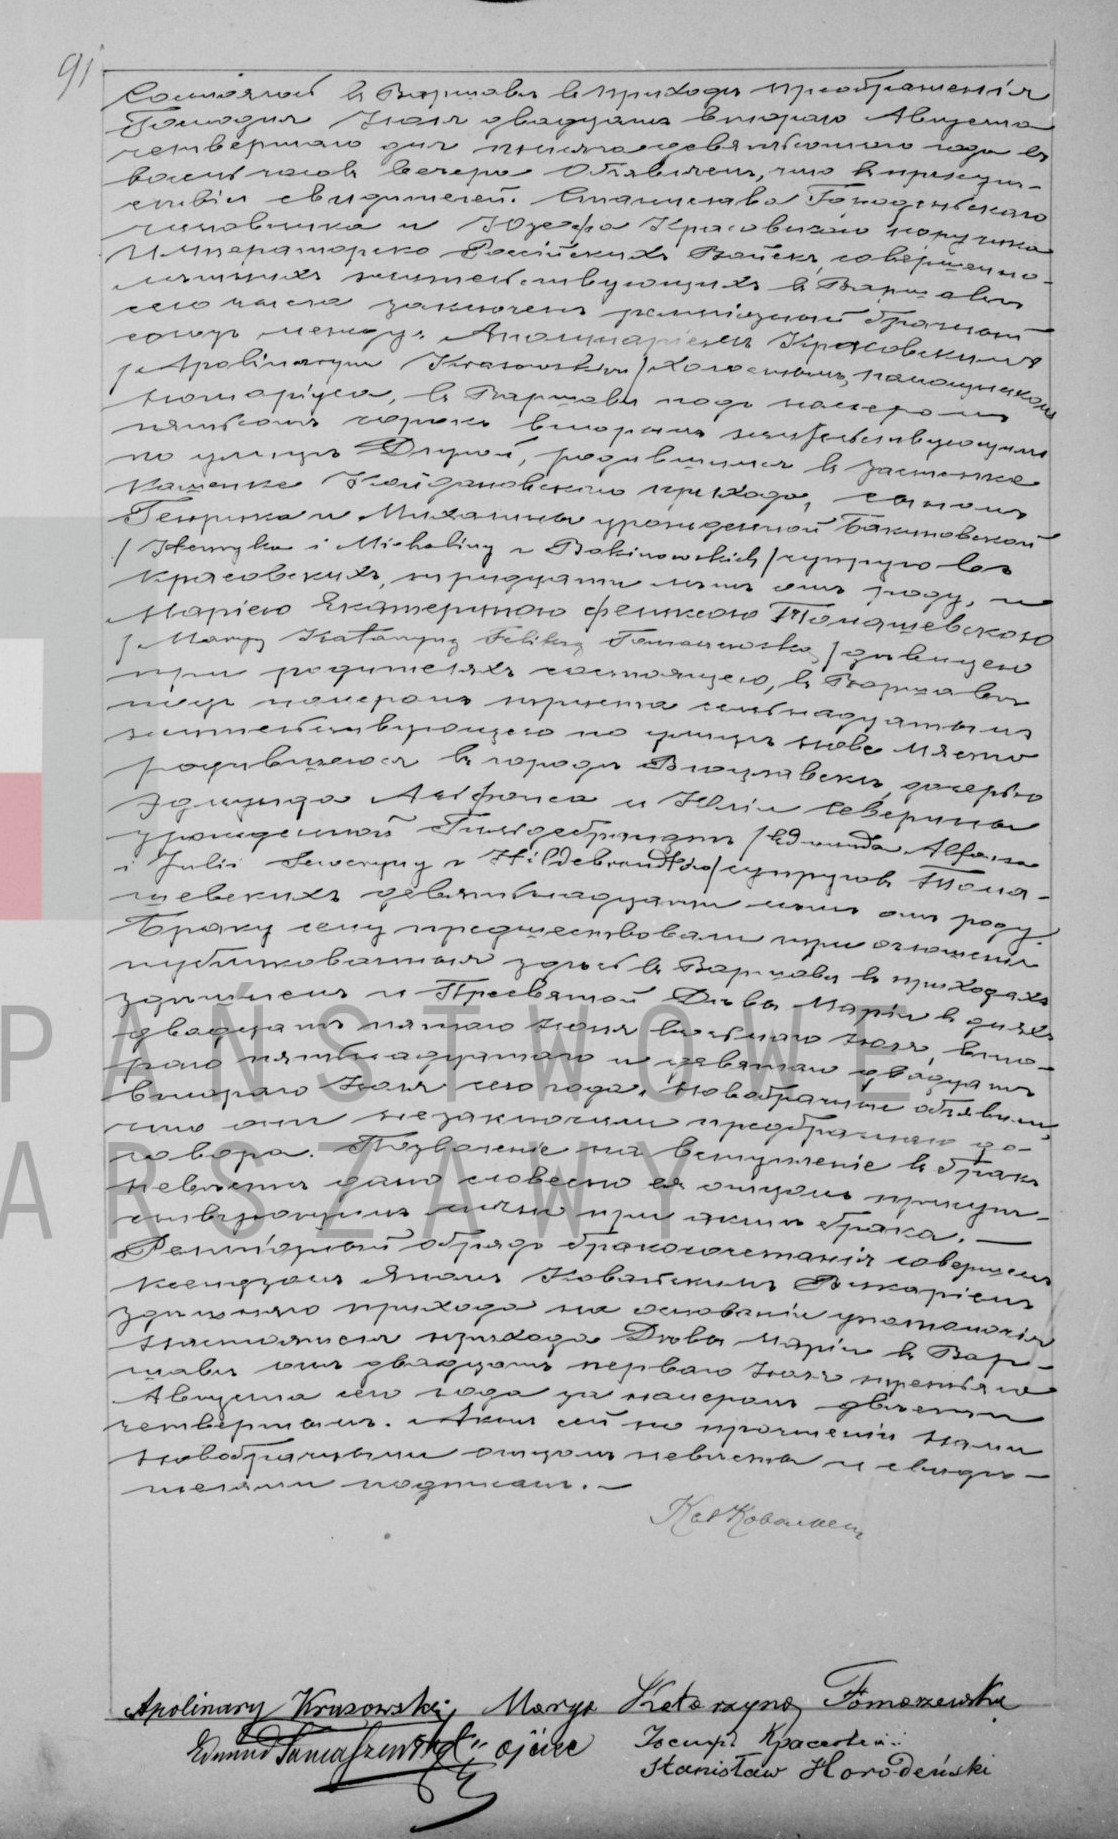 91
Состоялось въ Варшавѣ въ приходѣ преображенія
Господня Іюля двадцать втораго Августа
четвертаго дня тысяча девятьсотаго года въ
восемь часовъ вечера Объявляемъ, что въ присут-
ствіи свидѣтелей. Станислава Городеньскаго
чиновника и Юзефа Красовскаго поручика
Императорско Россійскихъ Войскъ, совершенно-
лѣтнихъ жительствующихъ въ Варшавѣ
сего числа заключенъ религіозный брачный
союзъ между: Аполинаріемъ Красовскимъ
/Apolinarym Krasowskim/ холостымъ, помощникомъ
нотаріуса, въ Варшавѣ подъ номеромъ
пятьсотъ сорокъ вторымъ жительствующимъ
по улицѣ Длугой, родившимся въ застенке
Кашенке Койдановскаго прихода, сыномъ
Генрика и Михалины урожденной Бакиновской
/Henryka i Michaliny z Bakinowskich/ супруговъ
Красовскихъ, тридцати лѣтъ отъ роду, и
Маріею Екатериною Феликсою Томашевскою
/Maryą Katarzyną Feliksą Tomaszewską/ дѣвицею
при родителяхъ состоящею, въ Варшавѣ
подъ номеромъ триста семьнадцатымъ
жительствующею по улицѣ Нове Място
родившеюся въ городѣ Влоцлавскѣ, дочерью
Эдмунда Альфонса и Юліи Северины
урожденной Гильдебрандтъ /Edmunda Alfonsa
i Julii Seweryny z Hildebrandtów/ супруговъ Тома-
шевскихъ девятьнадцати лѣтъ отъ роду.
Браку сему предшествовали три оглашенія
публикованныя здѣсь въ Варшавѣ въ приходахъ
здѣшнемъ и Пресвятой Дѣвы Маріи въ дняхъ
двадцать пятаго Іюня восьмаго Іюля, вто-
раго пятьнадцатаго и девятаго двадцать
втораго Іюля сего года. Новобрачные объявили,
что они незаключили предбрачнаго до-
говора. Позволеніе на вступленіе въ бракъ
невѣсты дано словесно ея отцомъ присут-
ствующимъ лично при актѣ брака. —
Религіозный обрядъ бракосочетанія совершенъ
ксендзомъ Яномъ Ковальскимъ Викаріемъ
здѣшняго прихода на основаніи упомоченія
Настоятеля прихода Дѣвы Маріи въ Вар-
шавѣ отъ двадцать перваго Іюля третьяго
Августа сего года за номеромъ двѣсти
четвертымъ. Актъ сей по прочтеніи Нами
Новобрачными отцомъ невѣсты и свидѣ-
телями подписанъ. —
Apolinary Krasowski, Marya Katarzyna Tomaszewska
Edmund Tomaszewski ojciec Іосифъ Красовскій
Stanisław Horodeński